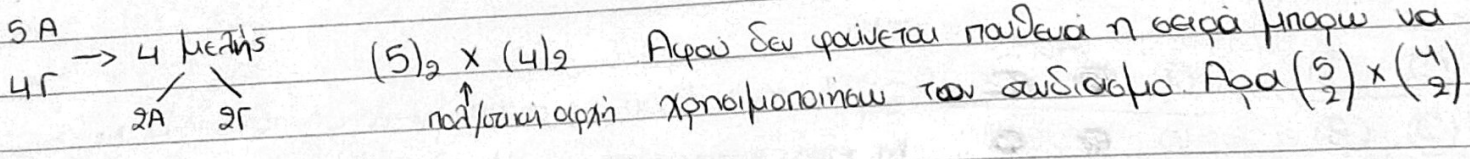 5 Α → 4 μελής (5)₂ × (4)₂ Αφού δεν φαίνεται πουθενά η σειρά μπορώ να
4Γ 2Α 2Γ πολ/στική αρχή χρησιμοποιήσω τον συνδιασμο. Αρα (5 2) × (4 2)